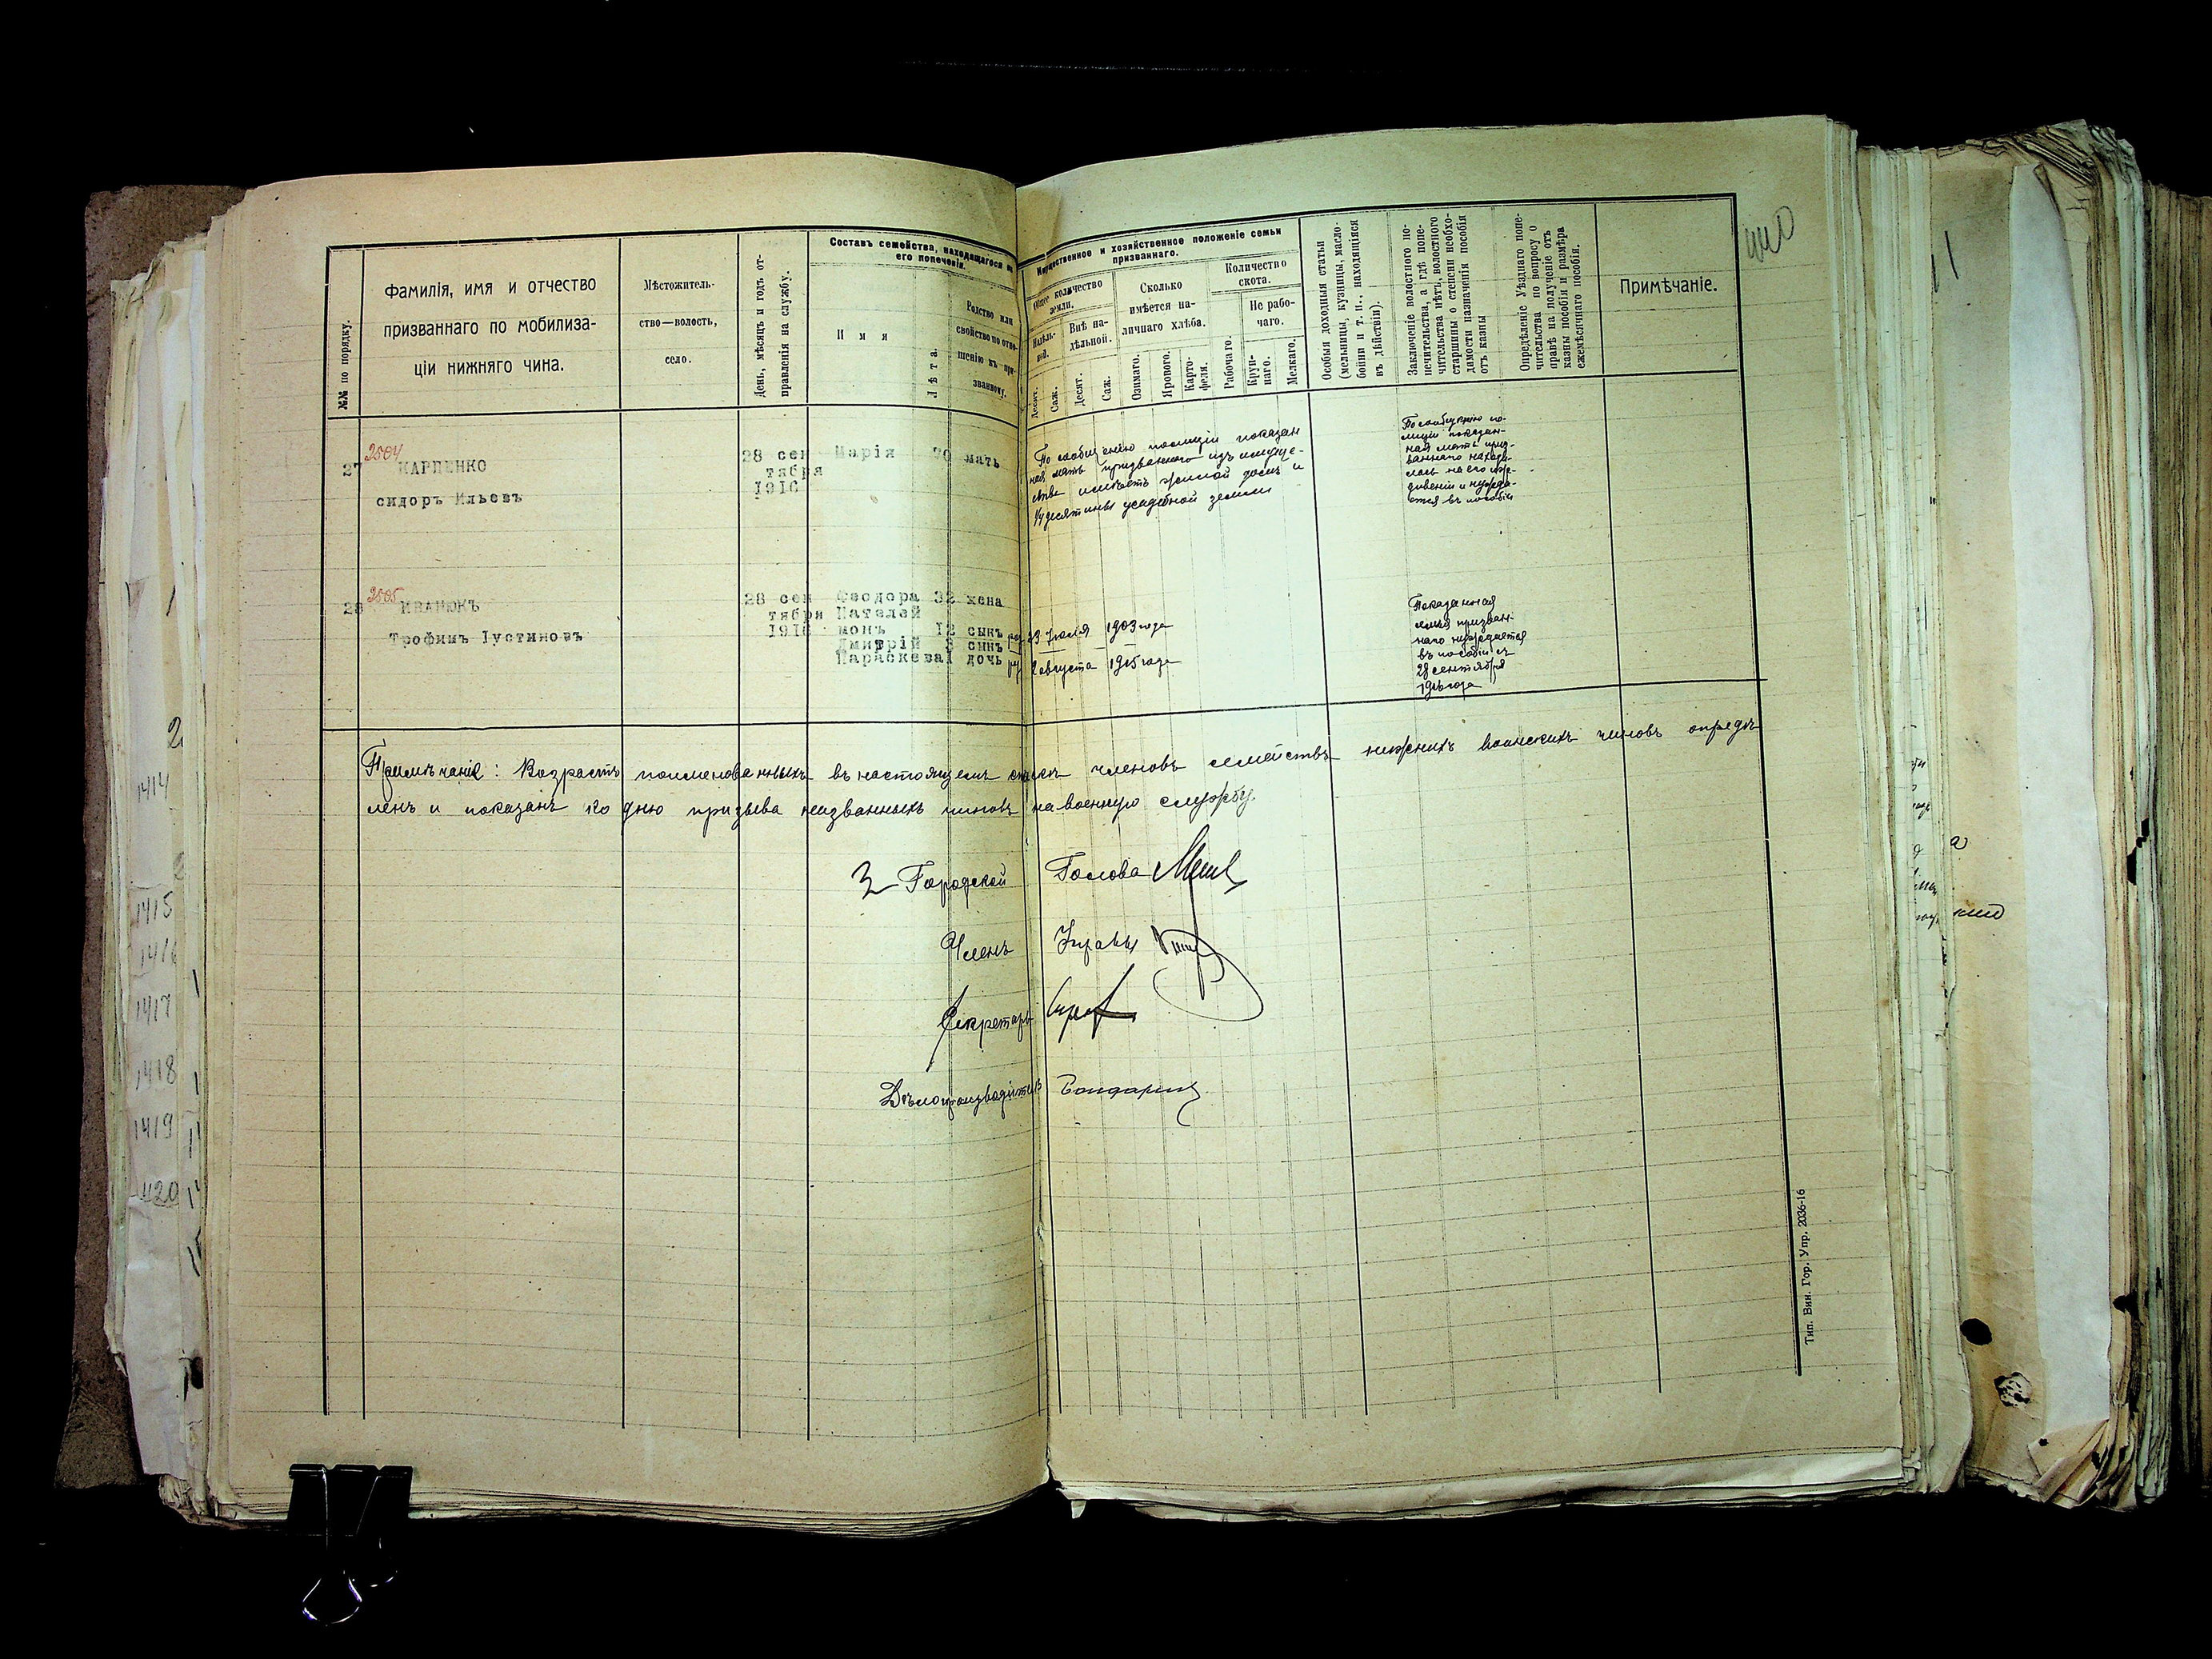 Фамилія, имя и отчество
призваннаго по мобилиза-
ціи нижняго чина.
№№ по порядку.
Мѣстожитель-
ство—волость,
село.
День, мѣсяцъ и годъ от-
правленія на службу.
Составъ семейства, находящагося на
его попеченіи.
Имя
Лѣта.
Родство или
свойство по отно-
шенію къ при-
званному.
Имущественное и хозяйственное положеніе семьи
призваннаго.
Общее количество
земли.
Надѣль-
ной.
Внѣ на-
дѣльной.
Десят.
Саж.
Десят.
Саж.
Сколько
имѣется на-
личнаго хлѣба.
Озимаго.
Яроваго.
Карто-
феля.
Количество
скота.
Рабочаго.
Не рабо-
чаго.
Круп-
наго.
Мелкаго.
Особыя доходныя статьи
(мельницы, кузницы, масло-
бойни и т. п., находящіяся
въ дѣйствіи).
Заключеніе волостного по-
печительства, а гдѣ попе-
чительства нѣтъ, волостного
старшины о степени необхо-
димости назначенія пособія
отъ казны
Опредѣленіе Уѣзднаго попе-
чительства по вопросу о
правѣ на полученіе отъ
казны пособія и размѣра
ежемѣсячнаго пособія.
Примѣчаніе.
27
2504
КАРПЕНКО
сидоръ Ильевъ
28 сен
тября
1916
Марія 70 мать
По сообщенію полиціи показан
ная мать призваннаго изъ имуще-
ства имѣетъ жилой домъ и
1/4 десятины усадебной земли
По сообщенію по-
лиціи показан-
ная мать приз-
ваннаго находи-
лась на его иж-
дивеніи и нужда-
ется въ пособіи
28
2505
ИВАНЮКЪ
Трофимъ Іустиновъ
28 сен
тября
1916
Феодора 32 жена
Пателей
монъ 12 сынъ род 23 Іюля 1903 года
Дмитрій 6 сынъ
Параскева 1 дочь 2 августа 1915 года
Показанная
семья призван-
наго нуждается
въ пособіи съ
28 сентября
1916 года
Примѣчаніе: Возрастъ поименованныхъ въ настоящемъ спискѣ членовъ семействъ нижнихъ воинскихъ чиновъ опредѣ
ленъ и показанъ по дню призыва названныхъ чиновъ на военную службу.
Городской Голова
Членъ Управы
Секретарь
Дѣлопроизводитель
Тип. Вин. Гор. Упр. 2036-16
1414
1415
1416
1417
1418
1419
1420